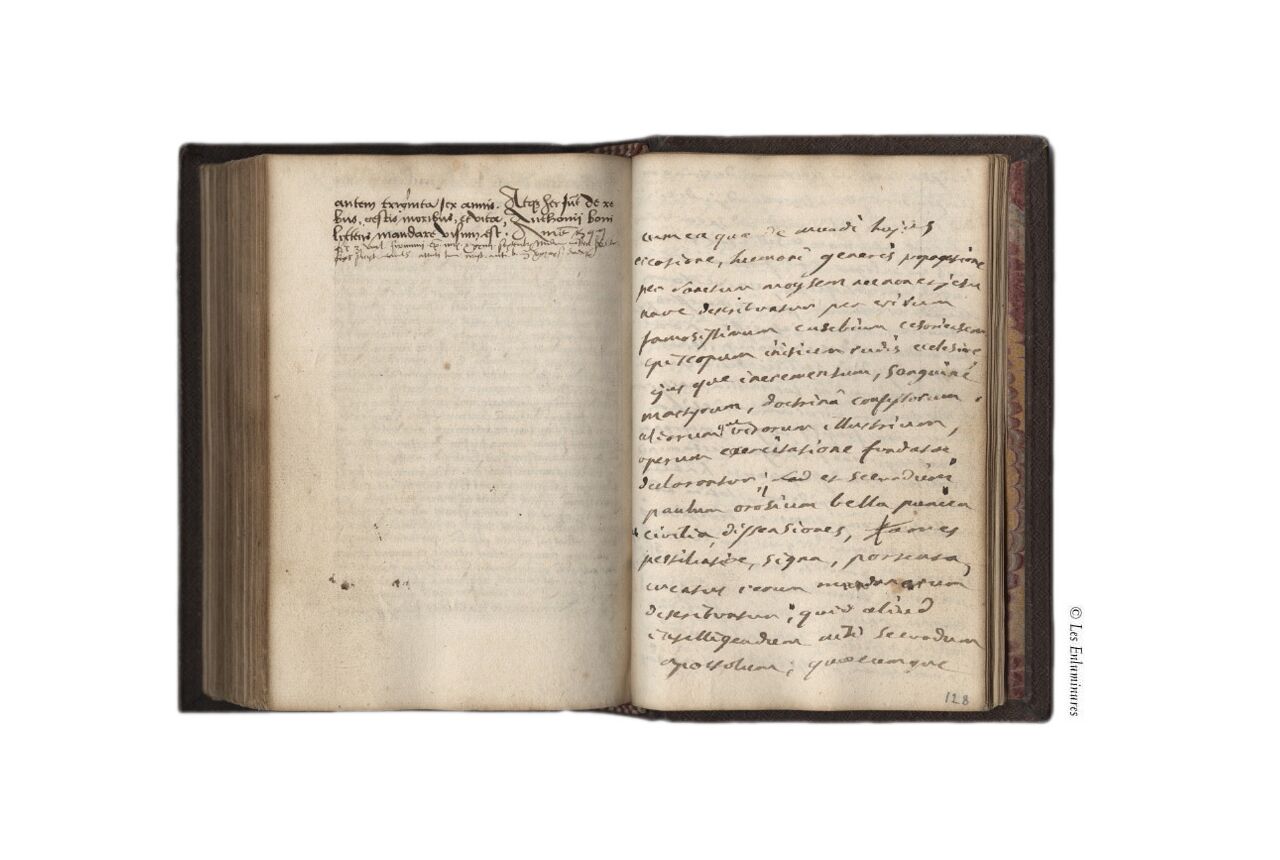 autem triginta sex annis. Atqꝫ hec sūt de re
bus, gestis moribus, et vita, Anthonii boni
litteris mandare visum est.
cum ea que de mundi hujus
creatione, humani generis propagatione
per sanctum moysem nec non et jesu
nave describuntur per
famosissimum eusebium cesariensem
episcopum initium rudis ecclesiæ
ejus que incrementum, sanguine
martyrum, doctrinâ confessorum
aliorum que virorum illustrium,
operum exercitatione fundatæ
declarantur; sed et secundum
paulum orosium bella punica
civilia, dissensiones, fames
pestilentiæ, signa, portenta,
rerum mundanarum
describuntur; quid aliud
intelligendum nisi secundum
apostolum; quæcumque
128
© Les Enluminures